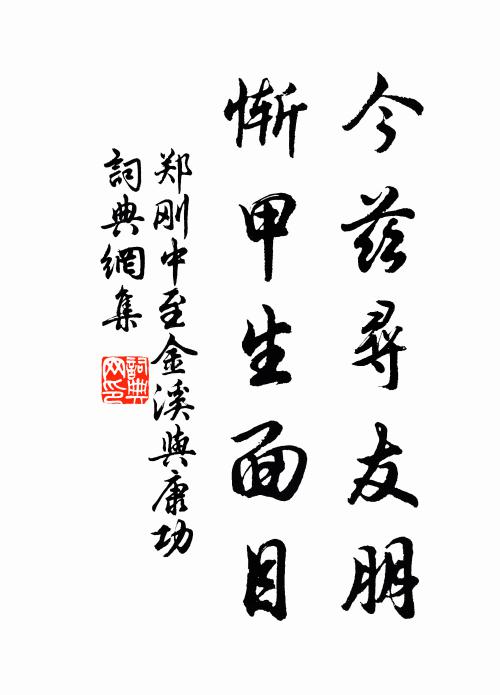 今茲尋友朋
慚甲生面目
郑刚中至金溪與康功
詞典網集
詞典
网印